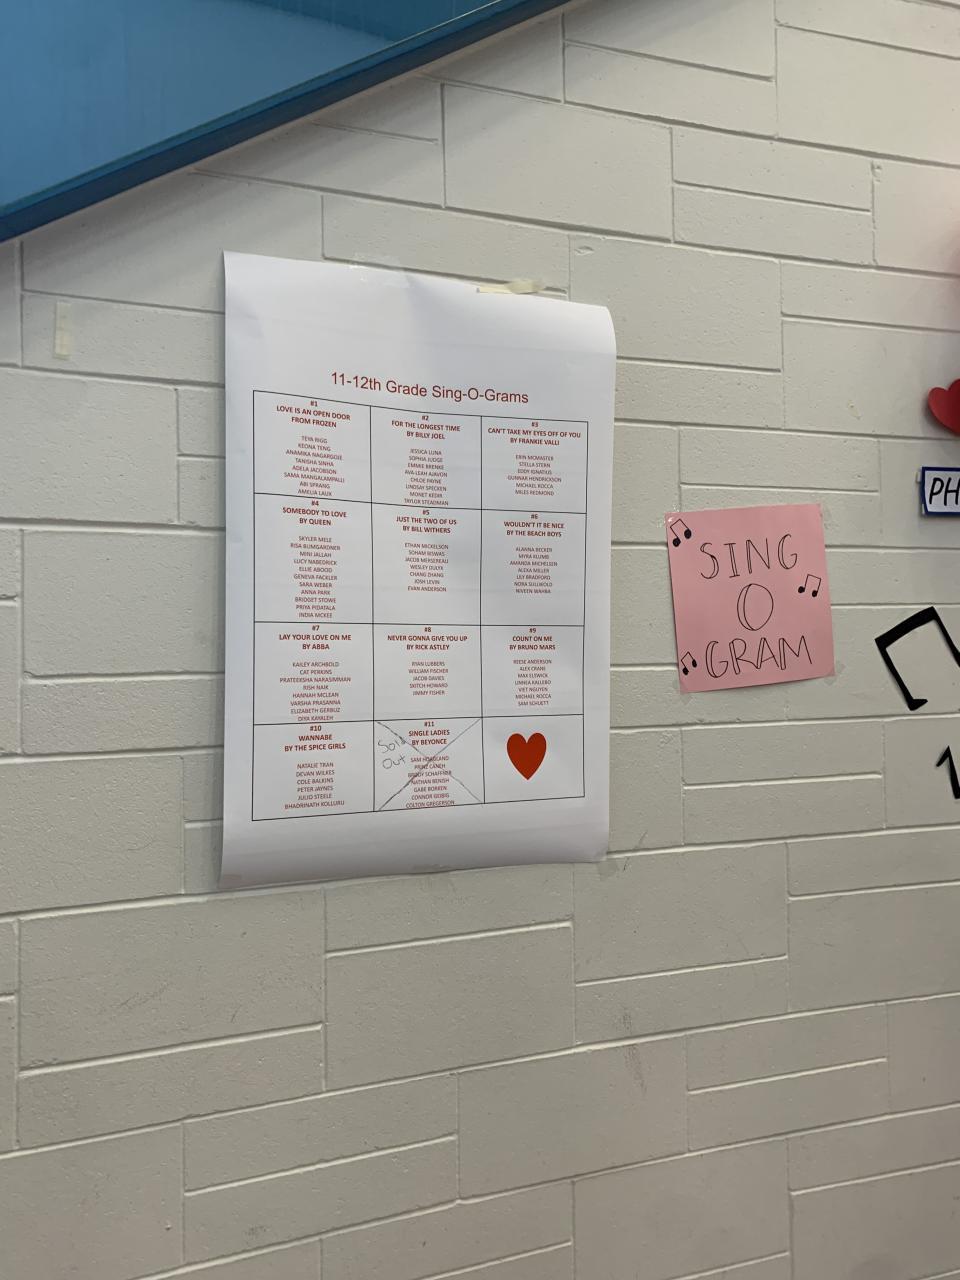 11-12th Grade Sing-O-Grams
#1
LOVE IS AN OPEN DOOR
FROM FROZEN
TEYA RIGG
KEONA TENG
ANAMIKA NAGARGOJE
TANISHA SINHA
ADELA JACOBSON
SAMA MANGALAMPALLI
ABI SPRANG
AMELIA LAUX
#2
FOR THE LONGEST TIME
BY BILLY JOEL
JESSICA LUNA
SOPHIA JUDGE
EMMIE BRENKE
AVA-LEAH AJAVON
CHLOE PAYNE
LINDSAY SPECKEN
MONET KEDIR
TAYLOR STEADMAN
#3
CAN'T TAKE MY EYES OFF OF YOU
BY FRANKIE VALLI
ERIN MCMASTER
STELLA STERN
EDDY IGNATIUS
GUNNAR HENDRICKSON
MICHAEL ROCCA
MILES REDMOND
#4
SOMEBODY TO LOVE
BY QUEEN
SKYLER MIELE
RISA BUMGARDNER
MINI JALLAH
LUCY NABEDRICK
ELLIE ABOOD
GENEVA FACKLER
SARA WEBER
ANNA PARK
BRIDGET STOWE
PRIYA PIDATALA
INDIA MCKEE
#5
JUST THE TWO OF US
BY BILL WITHERS
ETHAN MICKELSON
SOHAM BISWAS
JACOB MERSEREAU
WESLEY DULYX
CHANG ZHANG
JOSH LEVIN
EVAN ANDERSON
#6
WOULDN'T IT BE NICE
BY THE BEACH BOYS
ALANNA BECKER
MYRA KLUMB
AMANDA MICHELSEN
ALEXA MILLER
LILY BRADFORD
NORA SULLWOLD
NIVEEN WAHBA
#7
LAY YOUR LOVE ON ME
BY ABBA
KAILEY ARCHBOLD
CAT PERKINS
PRATEEKSHA NARASIMMAN
RISH NAIK
HANNAH MCLEAN
VARSHA PRASANNA
ELIZABETH GERBUZ
DIYA KAYALEH
#8
NEVER GONNA GIVE YOU UP
BY RICK ASTLEY
RYAN LUBBERS
WILLIAM FISCHER
JACOB DAVIES
SKITCH HOWARD
JIMMY FISHER
#9
COUNT ON ME
BY BRUNO MARS
REESE ANDERSON
ALEX CRANE
MAX ELSWICK
LINNEA KALLEBO
VIET NGUYEN
MICHAEL ROCCA
SAM SCHUETT
#10
WANNABE
BY THE SPICE GIRLS
NATALIE TRAN
DEVAN WILKES
COLE BALKINS
PETER JAYNES
JULIO STEELE
BHADRINATH KOLLURU
#11
SINGLE LADIES
BY BEYONCE
SAM HOAGLAND
BRODY SCHAFFNER
NATHAN BENISH
GABE BORKEN
CONNOR GEIBIG
COLTON GREGERSON
Sold
Out
SING
O
GRAM
PH